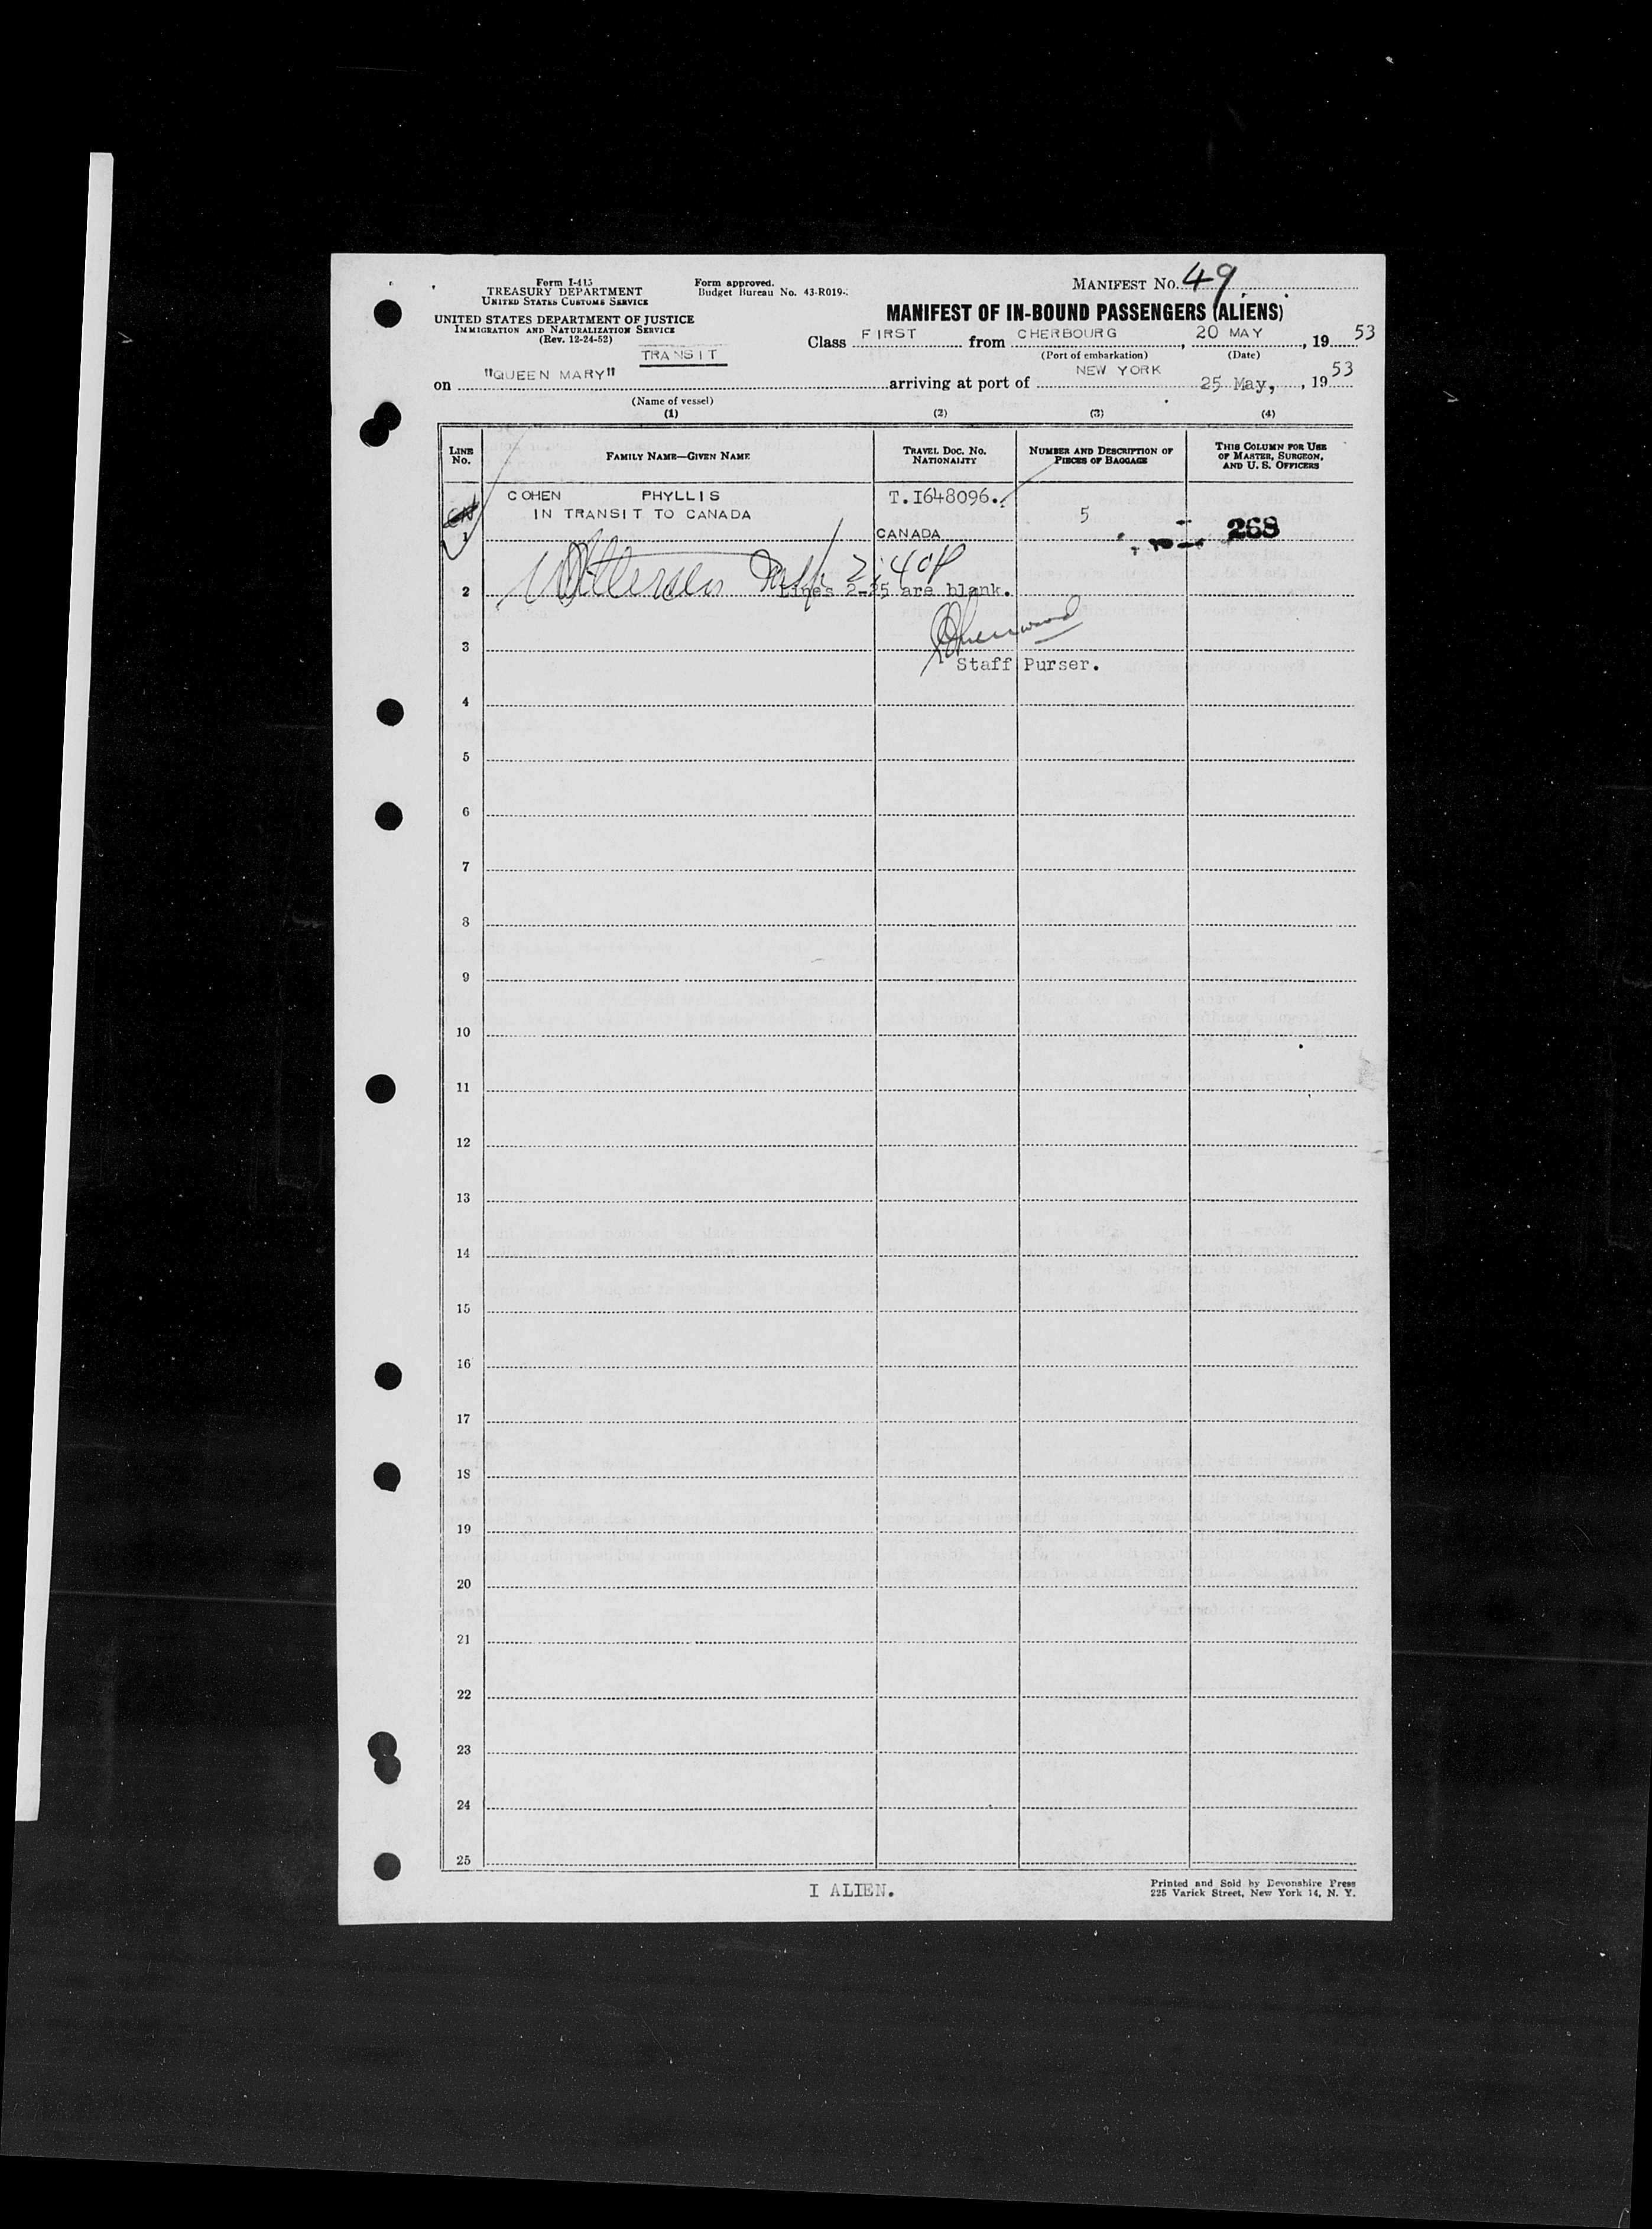 Form I-415
TREASURY DEPARTMENT
UNITED STATES CUSTOMS SERVICE
Form approved.
Budget Bureau No. 43-R019-
MANIFEST No. 49
UNITED STATES DEPARTMENT OF JUSTICE
IMMIGRATION AND NATURALIZATION SERVICE
(Rev. 12-24-52)
TRANSIT
MANIFEST OF IN-BOUND PASSENGERS (ALIENS)
Class FIRST from CHERBOURG, 20 MAY, 19 53
(Port of embarkation) (Date)
on "QUEEN MARY" arriving at port of NEW YORK 25 May, , 19 53
(Name of vessel)
(1) (2) (3) (4)
LINE No.
FAMILY NAME—GIVEN NAME
TRAVEL DOC. No. NATIONALITY
NUMBER AND DESCRIPTION OF PIECES OF BAGGAGE
THIS COLUMN FOR USE OF MASTER, SURGEON, AND U. S. OFFICERS
COHEN PHYLLIS T.I648096.
IN TRANSIT TO CANADA 5
1 CANADA 268
2 Lines 2-25 are blank.
3
Staff Purser.
4
5
6
7
8
9
10
11
12
13
14
15
16
17
18
19
20
21
22
23
24
25
I ALIEN.
Printed and Sold by Devonshire Press
225 Varick Street, New York 14, N. Y.